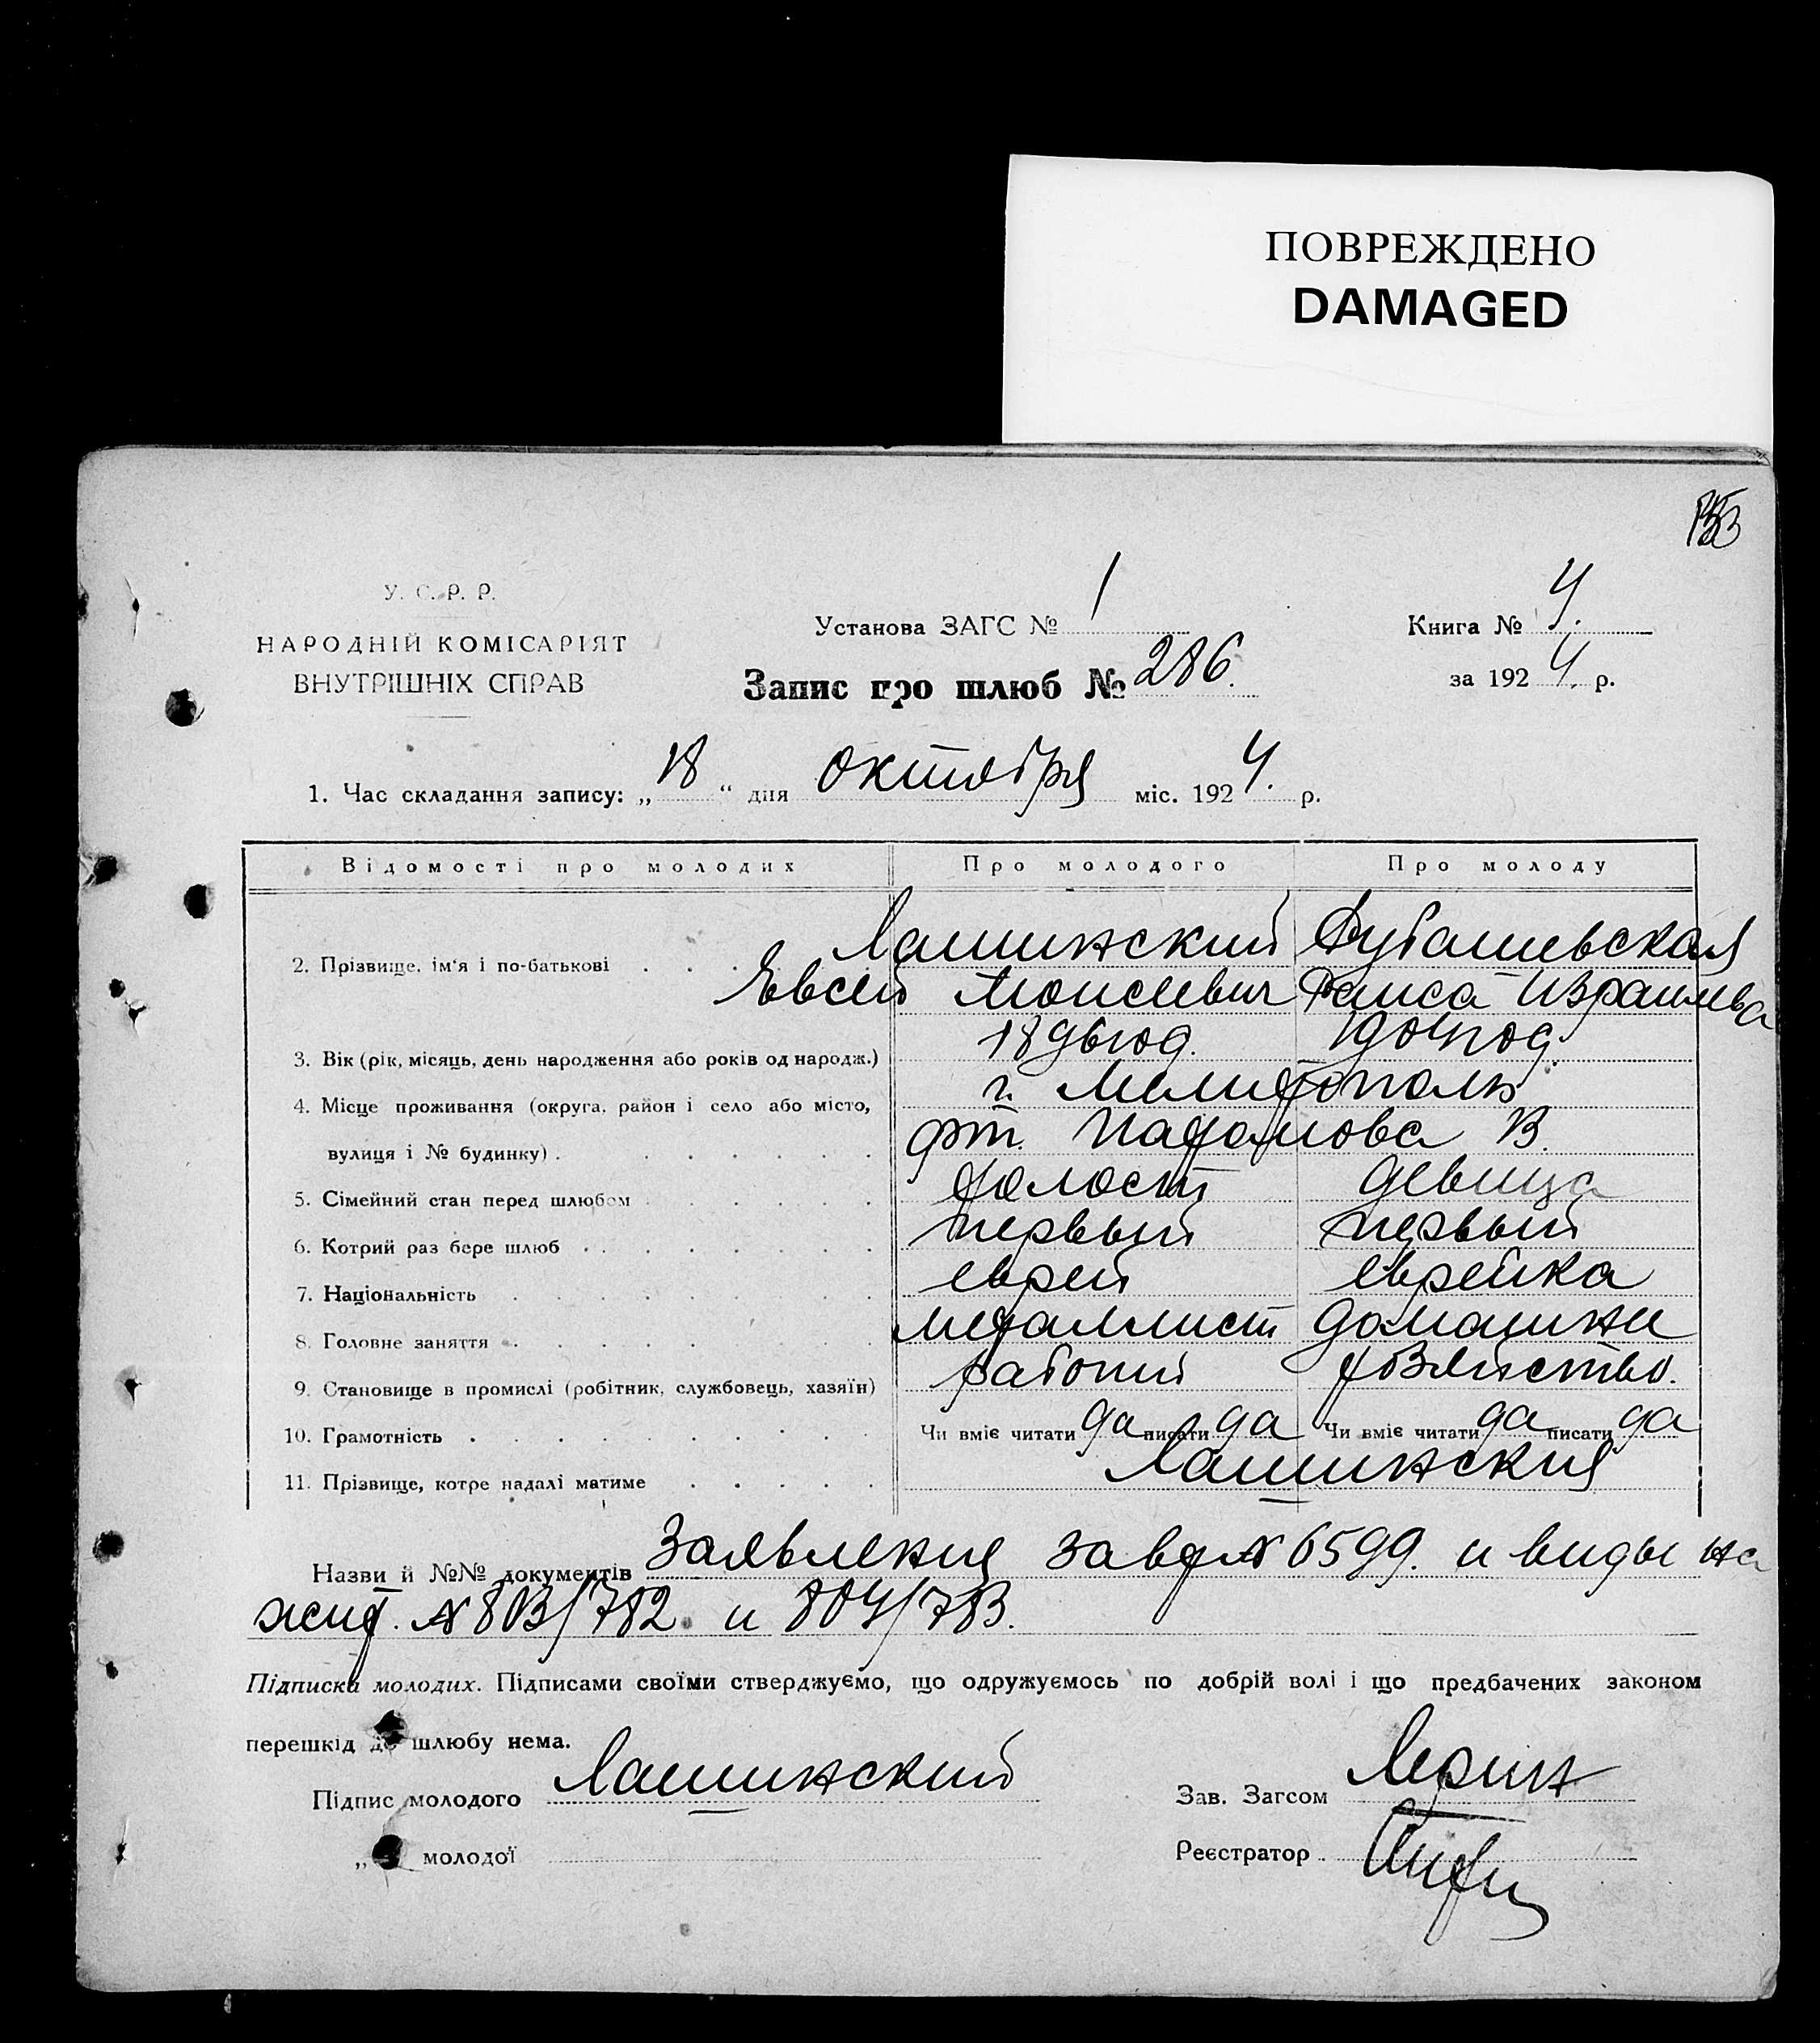 ПОВРЕЖДЕНО
DAMAGED
У. С. Р. Р.
НАРОДНІЙ КОМІСАРІЯТ
ВНУТРІШНІХ СПРАВ
Установа ЗАГС № 1
Книга № 4.
Запис про шлюб № 286.
за 1924. р.
1. Час складання запису: „18“ дня октября міс. 1924. р.
Відомості про молодих Про молодого Про молоду
2. Прізвище, ім'я і по-батькові Лашинский
Евсей Моисеевич Раиса Израилева
3. Вік (рік, місяць, день народження або років од народж.)
4. Місце проживання (округа, район і село або місто, г. Мелитополь
вулиця і № будинку)
5. Сімейний стан перед шлюбом холост девица
6. Котрий раз бере шлюб первый первый
7. Національність еврей еврейка
8. Головне заняття металлист домашнее
9. Становище в промислі (робітник, службовець, хазяїн) рабочий хозяйство.
10. Грамотність Чи вміє читати да писати да Чи вміє читати да писати да
11. Прізвище, котре надалі матиме Лашинския
Назви й №№ документів Заявления за вх № 6599. и виды на
жит. № 803/782 и 804/783.
Підписка молодих. Підписами своїми стверджуємо, що одружуємось по добрій волі і що предбачених законом
перешкід до шлюбу нема.
Підпис молодого Лашинский
Зав. Загсом
„ молодої
Реєстратор